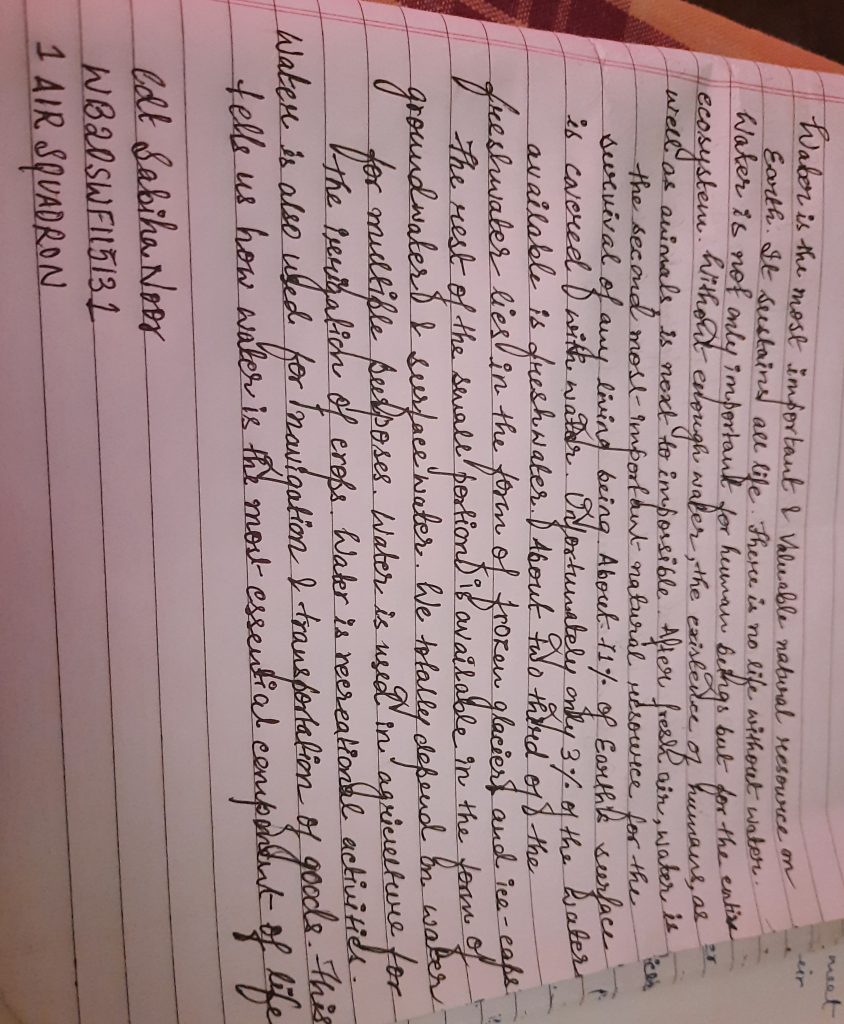 Water is the most important & Valuable natural resource on
Earth. It sustains all life. There is no life without water.
Water is not only important for human beings but for the entire
ecosystem. Without enough water, the existence of humans, as
well as animals is next to impossible. After fresh air, water is
the second most-important natural resource for the
survival of any living being. About 71% of Earth's surface
is covered with water. Unfortunately only 3% of the water
available is freshwater. About two third of the
freshwater lies in the form of frozen glaciers and ice-caps
The rest of the small portion is available in the form of
groundwater & surface water. We totally depend on water
for multiple purposes. Water is used in agriculture for
the irrigation of crops. Water is recreational activities.
Water is also used for navigation & transportation of goods. This
tells us how water is the most essential component of life
Cdt Sabiha Noor
WB20SWF115131
1 AIR SQUADRON
meat
air